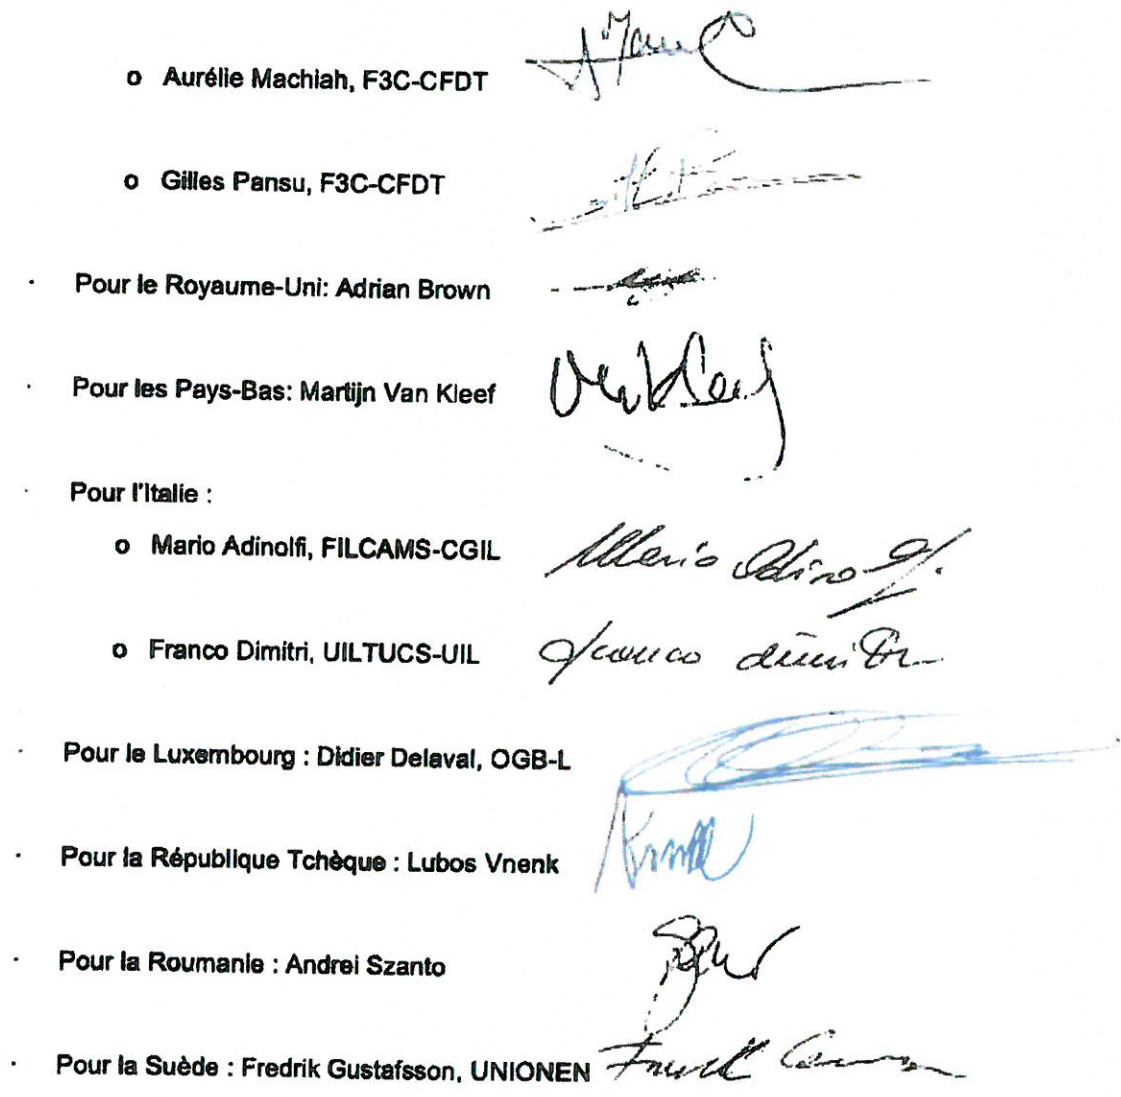 o Aurélie Machiah, F3C-CFDT
o Gilles Pansu, F3C-CFDT
· Pour le Royaume-Uni: Adrian Brown
· Pour les Pays-Bas: Martijn Van Kleef
· Pour l'Italie :
o Mario Adinolfi, FILCAMS-CGIL Mario Adinolfi
o Franco Dimitri, UILTUCS-UIL Franco dimitri
· Pour le Luxembourg : Didier Delaval, OGB-L
· Pour la République Tchèque : Lubos Vnenk
· Pour la Roumanie : Andrei Szanto
· Pour la Suède : Fredrik Gustafsson, UNIONEN